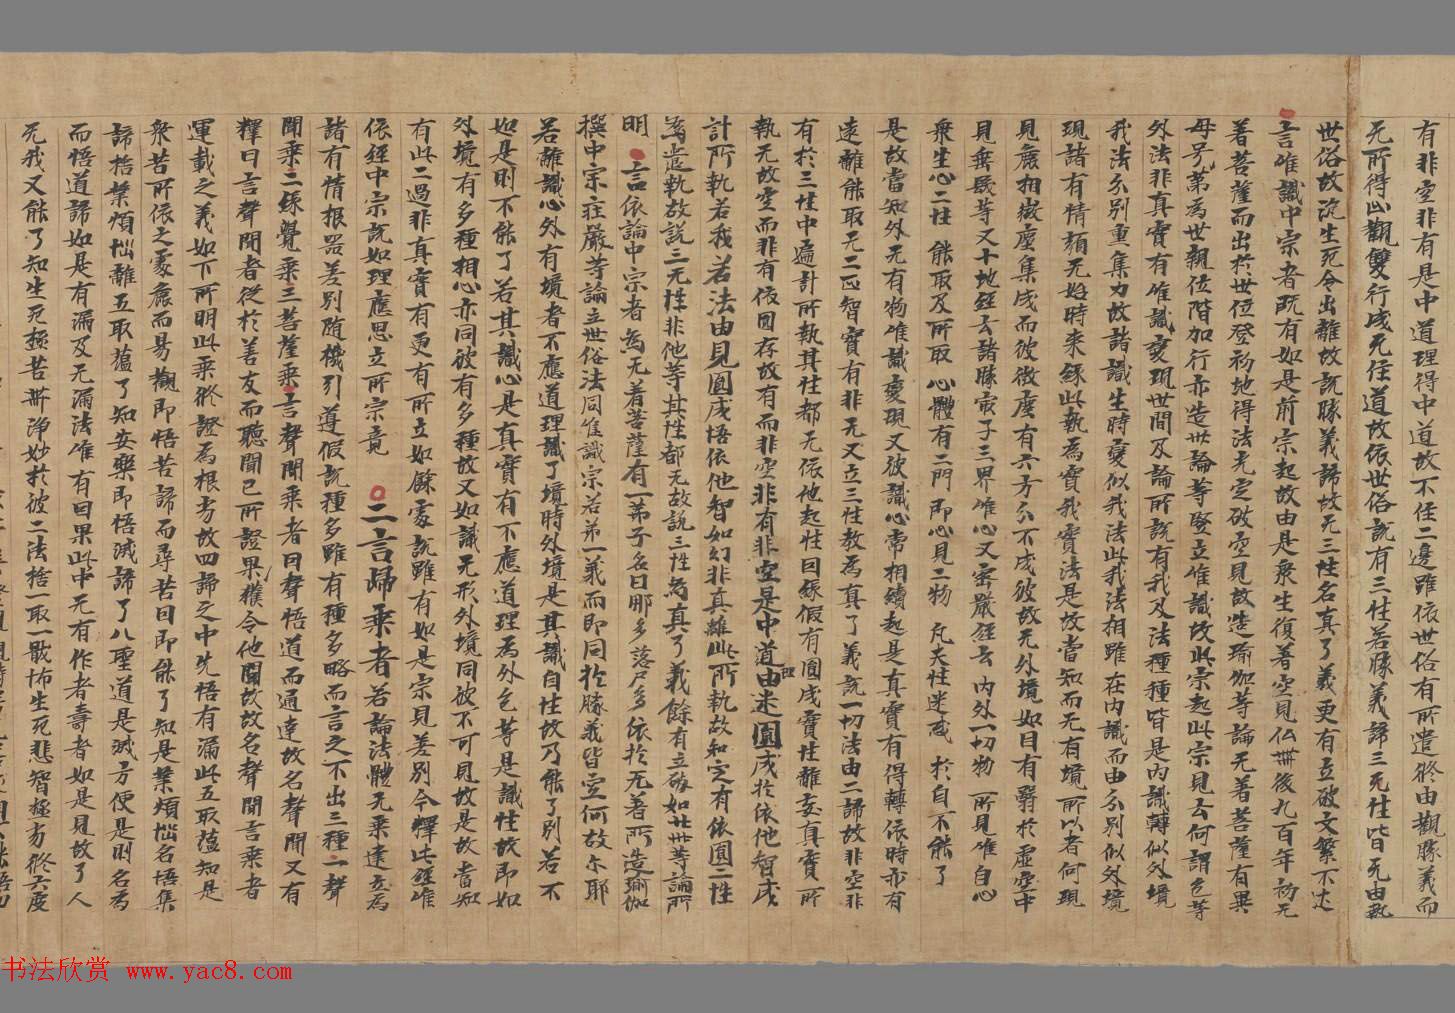 有非空非有是中道理得中道故不住二邊雖依世俗有所遣修由觀勝義而
无所得此觀雙行成无住道故依世俗說有三性若勝義諦三无性皆无由執
世俗故流生死令出離故說勝義諦故无三性名真了義更有立破文繁不述
言唯識中宗者既有如是前宗起故由是衆生復著空見仏世後九百年初无
著菩薩而出於世位登初地得法光定破空見故造瑜伽等論无著菩薩有異
母兄弟為世親位階加行亦造世論等竪立唯識故此宗起此宗見云何謂色等
外法非真實有唯識變現世間及論所說有我及法種種皆是内識轉似外境
我法分別重集力故諸識生時變似我法此我法相雖在内識而由分別似外境
現諸有情類无始時來緣此執為實我實法是故當知而无有境所以者何現
見麁相微塵集成而彼微塵有六方分不成彼故无外境如目有翳於虛空中
見垂髮等又十地經云諸勝家子三界唯心又密嚴經云内外一切物所見唯自心
衆生心二性能取及所取心體有二門即心見二物凡夫性迷惑於自不能了
是故當知外无有物唯識變現又彼識心常相續起是真實有得轉依時亦有
遠離能取无二正智實有非无又立三性教為真了義說一切法由二諦故非空非
有於三性中遍計所執其性都无依他起性因緣假有圓成實性離妄真實所
執无故空而非有依因存故有而非空非有非空是中道由迷圓成於依他智成
計所執若我若法由見圓成悟依他智如幻非真離此所執故和定有依圓二性
為遣執故說三无性非他等其性都无故說三性為真了義餘有立破如廿世等論所
明言依論中宗者為无著菩薩有一弟子名曰那多落尸多依於无著所造瑜伽
撰中宗庄嚴等論立世俗法同唯識宗若弟一義而即同於勝義皆空何故尓耶
若離識心外有境者不應道理識了境時外境是其識自性故乃能了別若不
如是則不能了若其識心是真實有不應道理為外色等是識性故即如
外境有多種相心亦同彼有多種故又如識无形外境同彼不可見故是故當知
有此二過非真實有更有所立如餘處說雖有如是宗見差別今釋此經唯
依經中宗說如理應思立所宗竟二言歸乘者若論法體无乘違立為
諸有情根器差別随機引導假說種多雖有種多略而言之不出三種一聲
聞乘二緣覺乘三菩薩乘言聲聞乘者曰聲悟道而通達故名聲聞又有
釋曰言聲聞者從於善友而聽聞已所證果獲令他聞故故名聲聞言乘者
運載之義如下所明此乘修證為根本故四諦之中先悟有漏此五取蘊知是
衆苦所依之處麁而易觀即悟苦諦而尋苦因即能了知是業煩惱名悟集
諦捨業煩惱離五取蘊了知安樂即悟滅諦了八聖道是滅方便是則名為
而悟道諦如是有漏及无漏法唯有因果此中无有作者壽者如是見故了人
无我又能了知生死極苦涅槃淨妙於彼二法捨一取一厭怖生死悲智極劣修六度